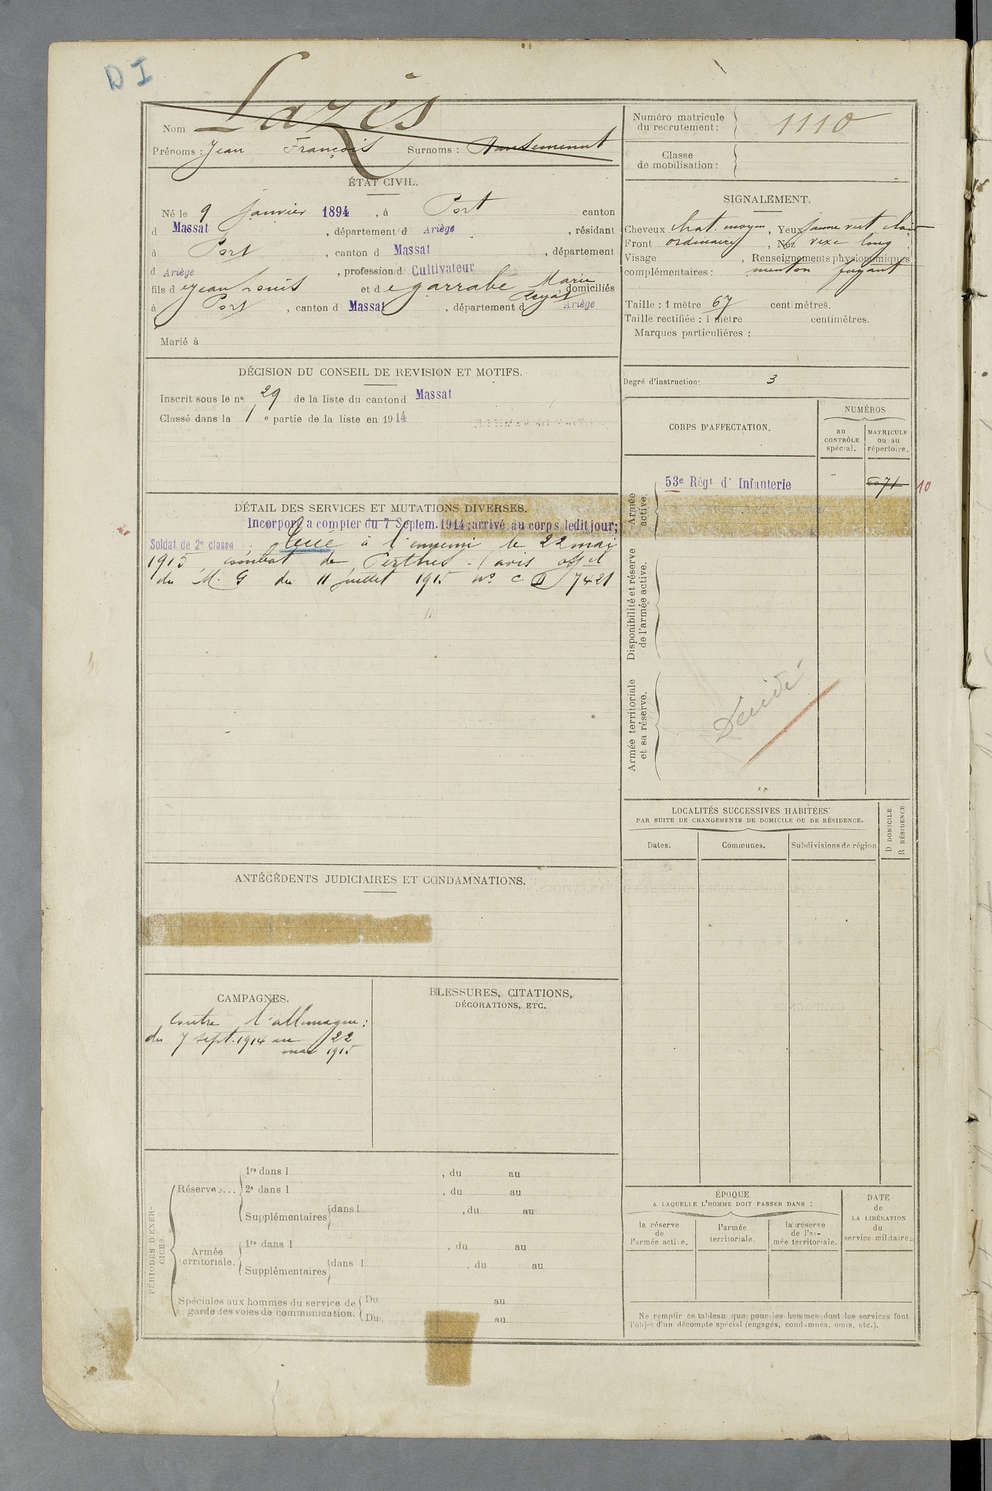 D I
Lazès
Nom
Prénoms : Jean François Surnoms :
Numéro matricule du recrutement : 1110
Classe de mobilisation :
ÉTAT CIVIL.
Né le 9 Janvier 1894, à Port canton
d Massat, département d Ariège, résidant
à Port, canton d Massat, département
d Ariège, profession d Cultivateur
fils d e Jean Louis et d e garrabé Marie, domiciliés
à Port, canton d Massat, département d Ariège
Marié à
SIGNALEMENT.
Cheveux chat. moyen, Yeux jaune vert clair
Front ordinaire, Nez vexe long
Visage , Renseignements physionomiques
complémentaires : menton fuyant
Taille : 1 mètre 67 centimètres.
Taille rectifiée : 1 mètre centimètres.
Marques particulières :
DÉCISION DU CONSEIL DE REVISION ET MOTIFS.
Inscrit sous le n° 29 de la liste du canton d Massat
Classé dans la 1 e partie de la liste en 1914
Degré d'instruction: 3
CORPS D'AFFECTATION.
NUMÉROS
au CONTRÔLE spécial.
MATRICULE ou au répertoire.
Armée active.
53e Régt d' Infanterie
10
Disponibilité et réserve de l'armée active.
Armée territoriale et sa réserve.
Décédé
DÉTAIL DES SERVICES ET MUTATIONS DIVERSES.
Incorporé a compter du 7 Septem. 1914; arrivé au corps ledit jour;
Soldat de 2e classe Tué à l'ennemi le 22 mai
1915 combat de Perthes - (avis offel
du M. G du 11 juillet 1915 n° C D 7421
LOCALITÉS SUCCESSIVES HABITÉES
PAR SUITE DE CHANGEMENTS DE DOMICILE OU DE RÉSIDENCE.
Dates.
Communes.
Subdivisions de région
D DOMICILE
R RÉSIDENCE
ANTÉCÉDENTS JUDICIAIRES ET CONDAMNATIONS.
CAMPAGNES.
Contre l'allemagne :
du 7 sept. 1914 au 22
mai 1915
BLESSURES, CITATIONS,
DÉCORATIONS, ETC.
PÉRIODES D'EXERCICES.
Réserve...
1re dans l , du au
2e dans l , du au
Supplémentaires dans l , du au
Armée territoriale.
1re dans l , du au
Supplémentaires dans l , du au
Spéciales aux hommes du service de garde des voies de communication.
Du au
Du au
ÉPOQUE
A LAQUELLE L'HOMME DOIT PASSER DANS :
la réserve de l'armée active.
l'armée territoriale.
la réserve de l'armée territoriale.
DATE de LA LIBÉRATION du service militaire.
Ne remplir ce tableau que pour les hommes dont les services font
l'objet d'un décompte spécial (engagés, condamnés, omis, etc.).